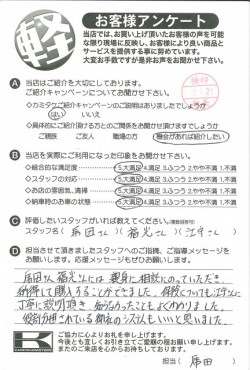 軽
お客様アンケート
当店では、お買い上げ頂いたお客様の声を可能
な限り現場に反映し、お客様により良い商品と
サービスを提供する事に努めています。
大変お手数ですが是非お声をお聞かせ下さい。
A 当店はご紹介を大切にしております。
ご紹介キャンペーンについてお聞かせ下さい。
◇カミタケご紹介キャンペーンのご説明はありましたでしょうか
はい いいえ
◇具体的にご紹介頂ける方とのご関係をお聞かせ頂けますでしょうか
ご親族 ご友人 職場の方 機会があれば紹介したい
B 当店を実際にご利用になった印象をお聞かせ下さい。
◇総合的な満足度 5.大満足 4.満足 3.ふつう 2.やや不満 1.不満
◇スタッフの対応 5.大満足 4.満足 3.ふつう 2.やや不満 1.不満
◇お店の雰囲気、清掃 5.大満足 4.満足 3.ふつう 2.やや不満 1.不満
◇納車時のお車の状態 5.大満足 4.満足 3.ふつう 2.やや不満 1.不満
C 評価したいスタッフがいれば教えてください。(複数回答可)
スタッフ名 ( さん ) ( 福光さん ) ( 江守さん )
D 担当させて頂きましたスタッフへのご指摘、ご指導メッセージを
お願いします。応援メッセージもぜひお願いします。
さん 福光さんには 親身に相談にのっていただき
納得して購入することができました。保険についても江守さんに
丁寧に説明頂き、
役割分担されている御社のシステムもいいと思いました。
ご協力に心よりお礼を申し上げます。
今後とも宜しくお引き立てご愛顧の程お願い申し上げます。
またのご来店を心からお待ちしております。
担当 (